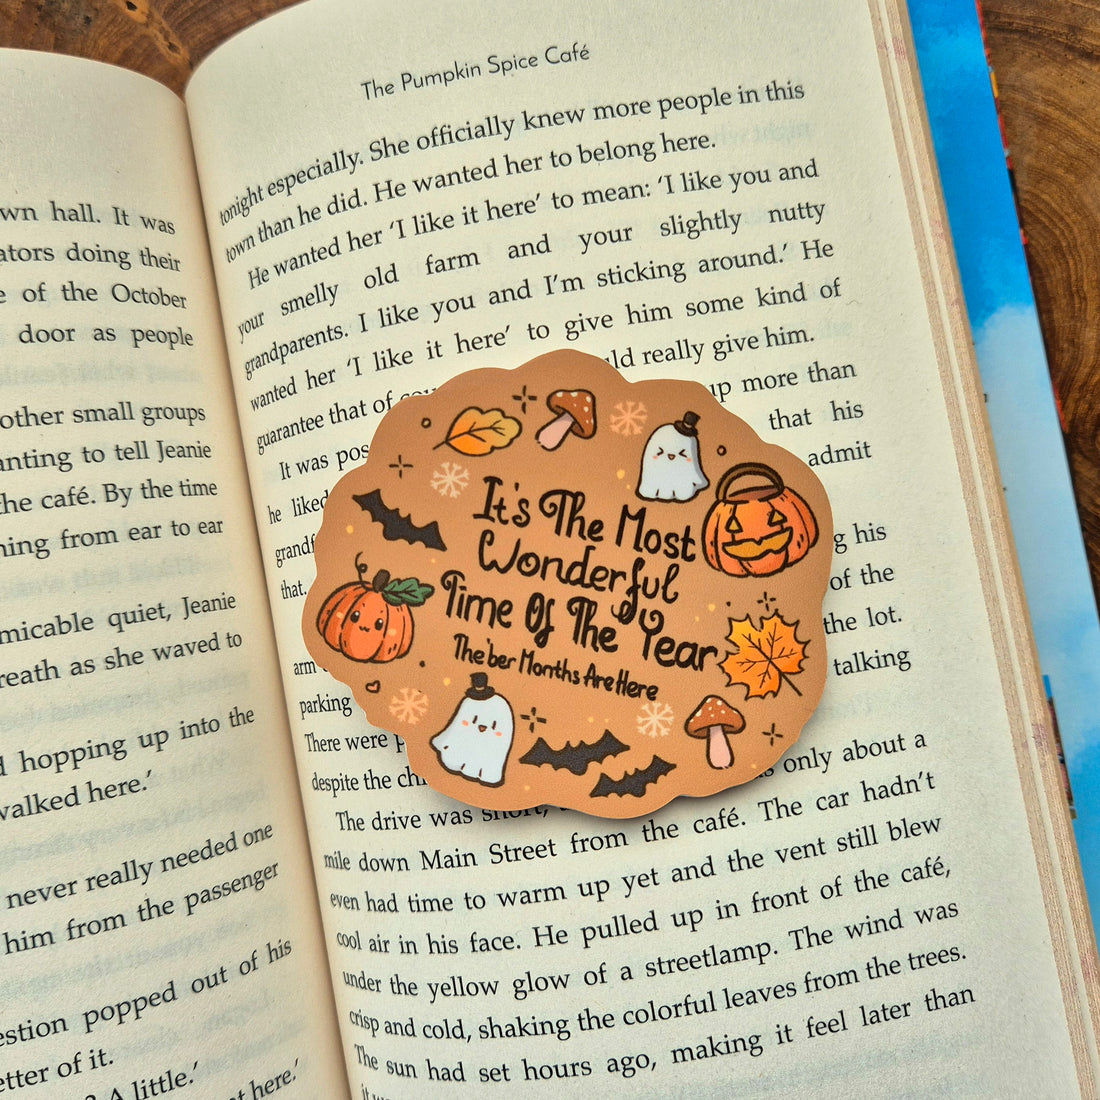 wn hall. It was
ators doing their
e of the October
door as people
other small groups
anting to tell Jeanie
the café. By the time
ning from ear to ear
micable quiet, Jeanie
reath as she waved to
d hopping up into the
walked here.’
never really needed one
him from the passenger
estion popped out of his
etter of it.
? A little.’
t here.’
The Pumpkin Spice Café
tonight especially. She officially knew more people in this
town than he did. He wanted her to belong here.
He wanted her ‘I like it here’ to mean: ‘I like you and
your smelly old farm and your slightly nutty
grandparents. I like you and I’m sticking around.’ He
wanted her ‘I like it here’ to give him some kind of
guarantee that of uld really give him.
It was pos up more than
he liked that his
grandf admit
that.
g his
of the
the lot.
arm talking
parking
There were p
despite the chi s only about a
The drive was short,
mile down Main Street from the café. The car hadn’t
even had time to warm up yet and the vent still blew
cool air in his face. He pulled up in front of the café,
under the yellow glow of a streetlamp. The wind was
crisp and cold, shaking the colorful leaves from the trees.
The sun had set hours ago, making it feel later than
it w
It's The Most
Wonderful
Time Of The Year
The 'ber Months Are Here